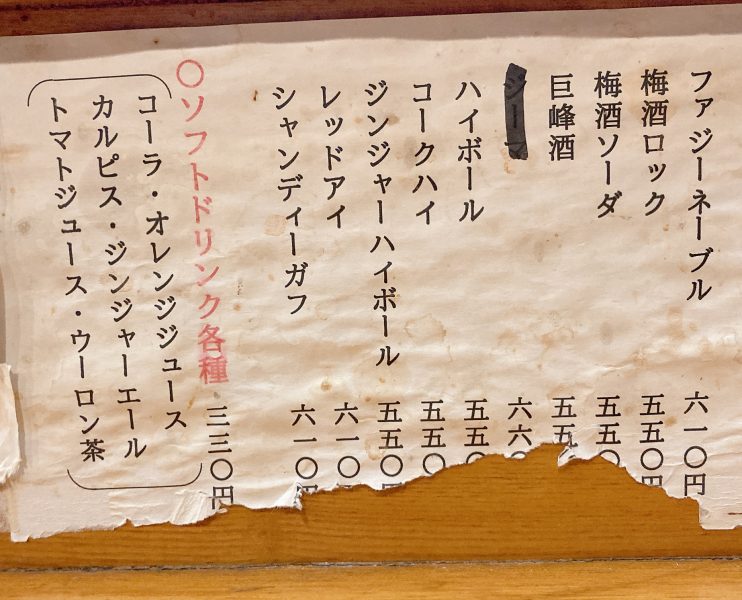 ファジーネーブル 六一〇円
梅酒ロック 五五〇円
梅酒ソーダ 五五〇
巨峰酒 五五
六六
ハイボール 五五〇
コークハイ 五五〇
ジンジャーハイボール 五五〇円
レッドアイ 六一〇円
シャンディーガフ 六一〇円
〇ソフトドリンク各種 三三〇円
コーラ・オレンジジュース
カルピス・ジンジャーエール
トマトジュース・ウーロン茶